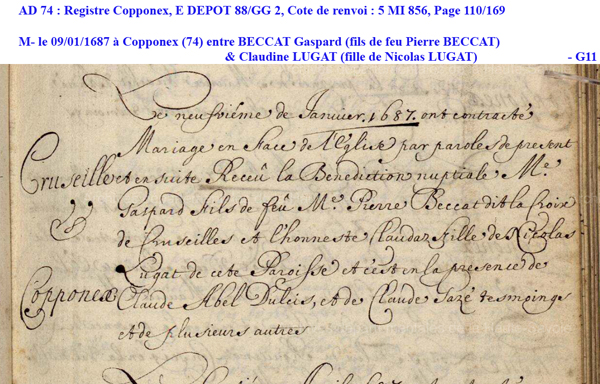 AD 74 : Registre Copponex, E DEPOT 88/GG 2, Cote de renvoi : 5 MI 856, Page 110/169
M- le 09/01/1687 à Copponex (74) entre BECCAT Gaspard (fils de feu Pierre BECCAT)
& Claudine LUGAT (fille de Nicolas LUGAT) - G11
Le neufvième de Janvier 1687. ont contracté
Mariage en face de l'Eglise par paroles de present
Cruseille et en suite Receû la Benediction nuptiale Me.
Gaspard fils de feû Me. Pierre Beccat dit la Croix
de Cruseilles et l'honneste Claudaz fille de Nicolas
Lugat de cete Paroisse et c'est en la presence de
Copponex Claude Abel Dulcis, et de Claude tesmoings
et de plusieurs autres